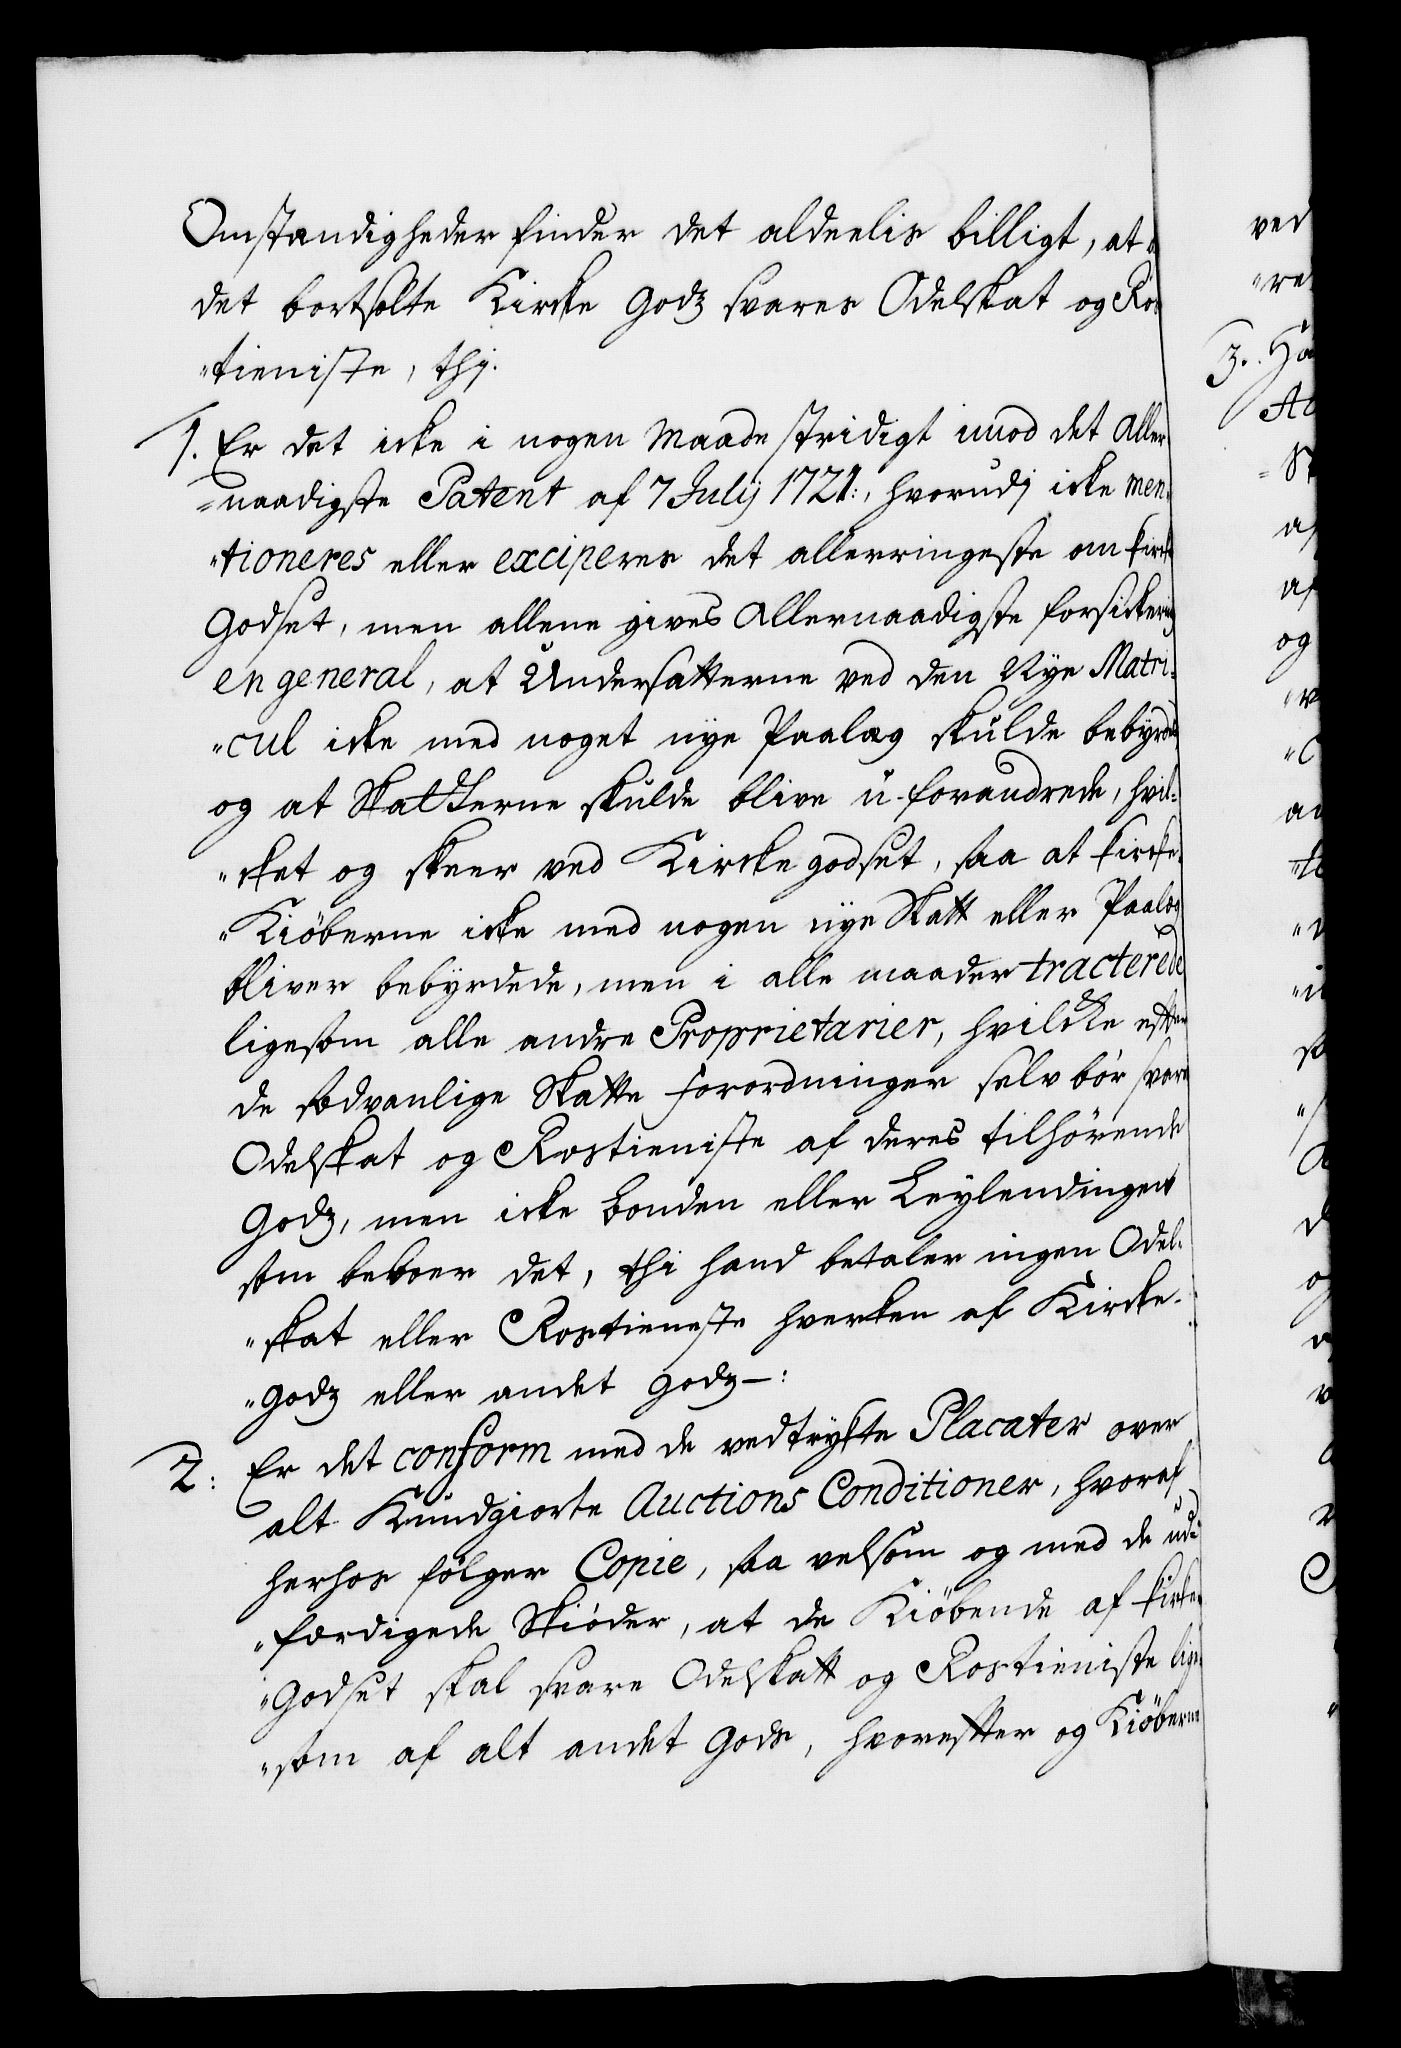 Omstændigheder finder det aldeelis billigt, at
det bortsolte Kircke Godz svares Odelskat og Ros
"tieniste, thj.
1. Er det icke i nogen Maade stridigt imod det Aller
"naadigste Patent af 7 Julij 1721:, hvorudj icke men-
"tioneres eller exciperes det allerringeste om kircke
Godset, men allene gives Allernaadigste forsickering
en general, at Undersatterne ved den Nye Matri-
"cul icke med noget nye Paalæg skulde bebyrdes
og at Skatterne skulde blive u-forandrede, hvil-
"cket og skeer ved Kirckegodset, saa at kircke-
"Kiöberne icke med nogen nye Skatt eller Paalæg
bliver bebyrdede, men i alle maader tracterede
ligesom alle andre Proprietarier, hvilcke efter
de sædvanlige Skatte forordninger selv bör svare
Odelskat og Rostieniste af deres tilhörende
Godz, men icke bonden eller Leylendingen
som beboer det, thi hand betaler ingen Odel-
"skat eller Rostieneste hverken af Kircke-
"godz eller andet godz-:
2: Er det conform med de vedtrykte Placater over
alt Kundgiorte Auctions Conditioner, hvoraf
herhos fölger Copie, saa velsom og med de ud-
"færdigede Skiöder, at de Kiöbende af kircke-
"Godset skal svare Odelskatt og Rostieniste lige
"som af alt andet Gods, hvorefter og Kiöberne
ved
3.
og